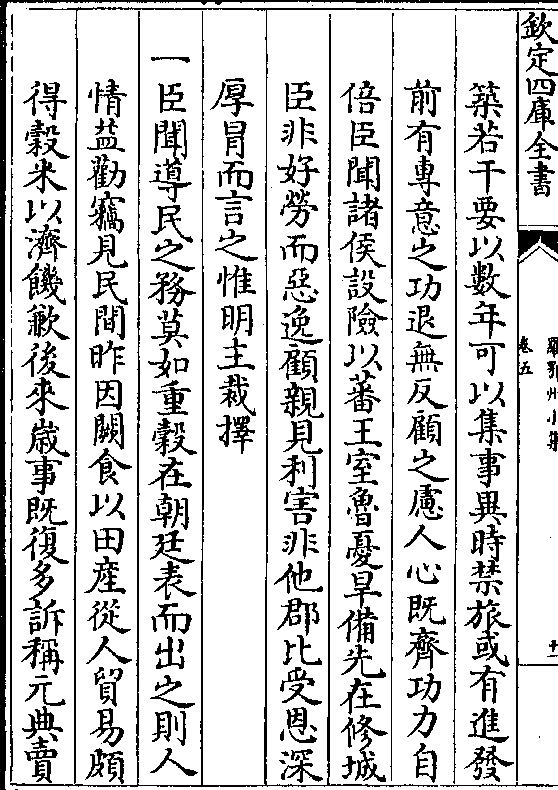 欽定四庫全書
羅鄂州小集
卷五
築若干要以數年可以集事異時禁旅或有進發
前有專意之功退無反顧之慮人心既齊功力自
倍臣聞諸侯設險以蕃王室魯憂旱備先在修城
臣非好勞而惡逸顧親見利害非他郡比受恩深
厚冐而言之惟明主裁擇
一臣聞導民之務莫如重穀在朝廷表而出之則人
情益勸竊見民間昨因闕食以田產從人貿易頗
得穀米以濟饑歉後來嵗事既復多訴稱元典賣